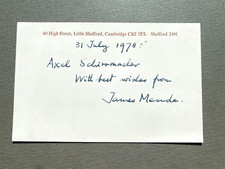 40 High Street, Little Shelford, Cambridge CB2 5ES. Shelford 2491
31 July 1978
Axel Schirrmacher
With best wishes from
James Meade.